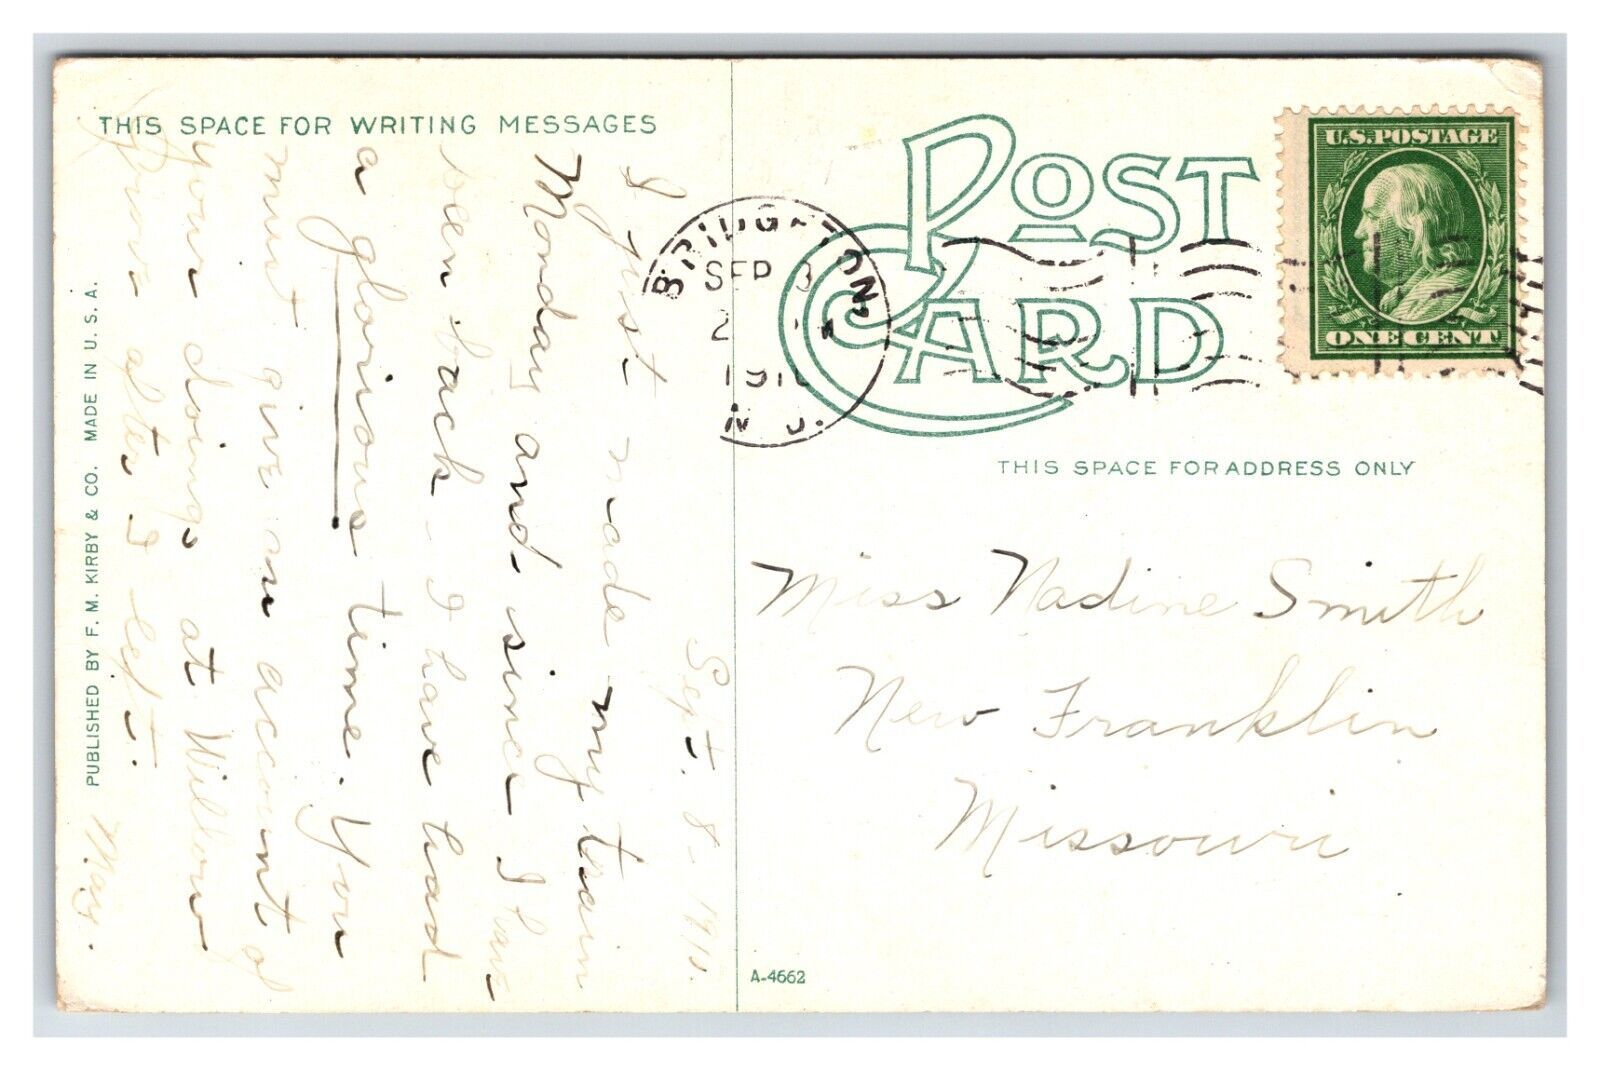 THIS SPACE FOR WRITING MESSAGES
Sept. 8-1910.
I just made my train
Monday and since I have
been back - I have had
a glorious time. You
must give an account of
your doings at Willow
Grove after I left.
May.
PUBLISHED BY F. M. KIRBY & CO. MADE IN U. S. A.
POST CARD
BRIDGETON,
SEP 8
2
1910
N. J.
U.S. POSTAGE
ONE CENT
THIS SPACE FOR ADDRESS ONLY
Miss Nadine Smith
New Franklin
Missouri
A-4662